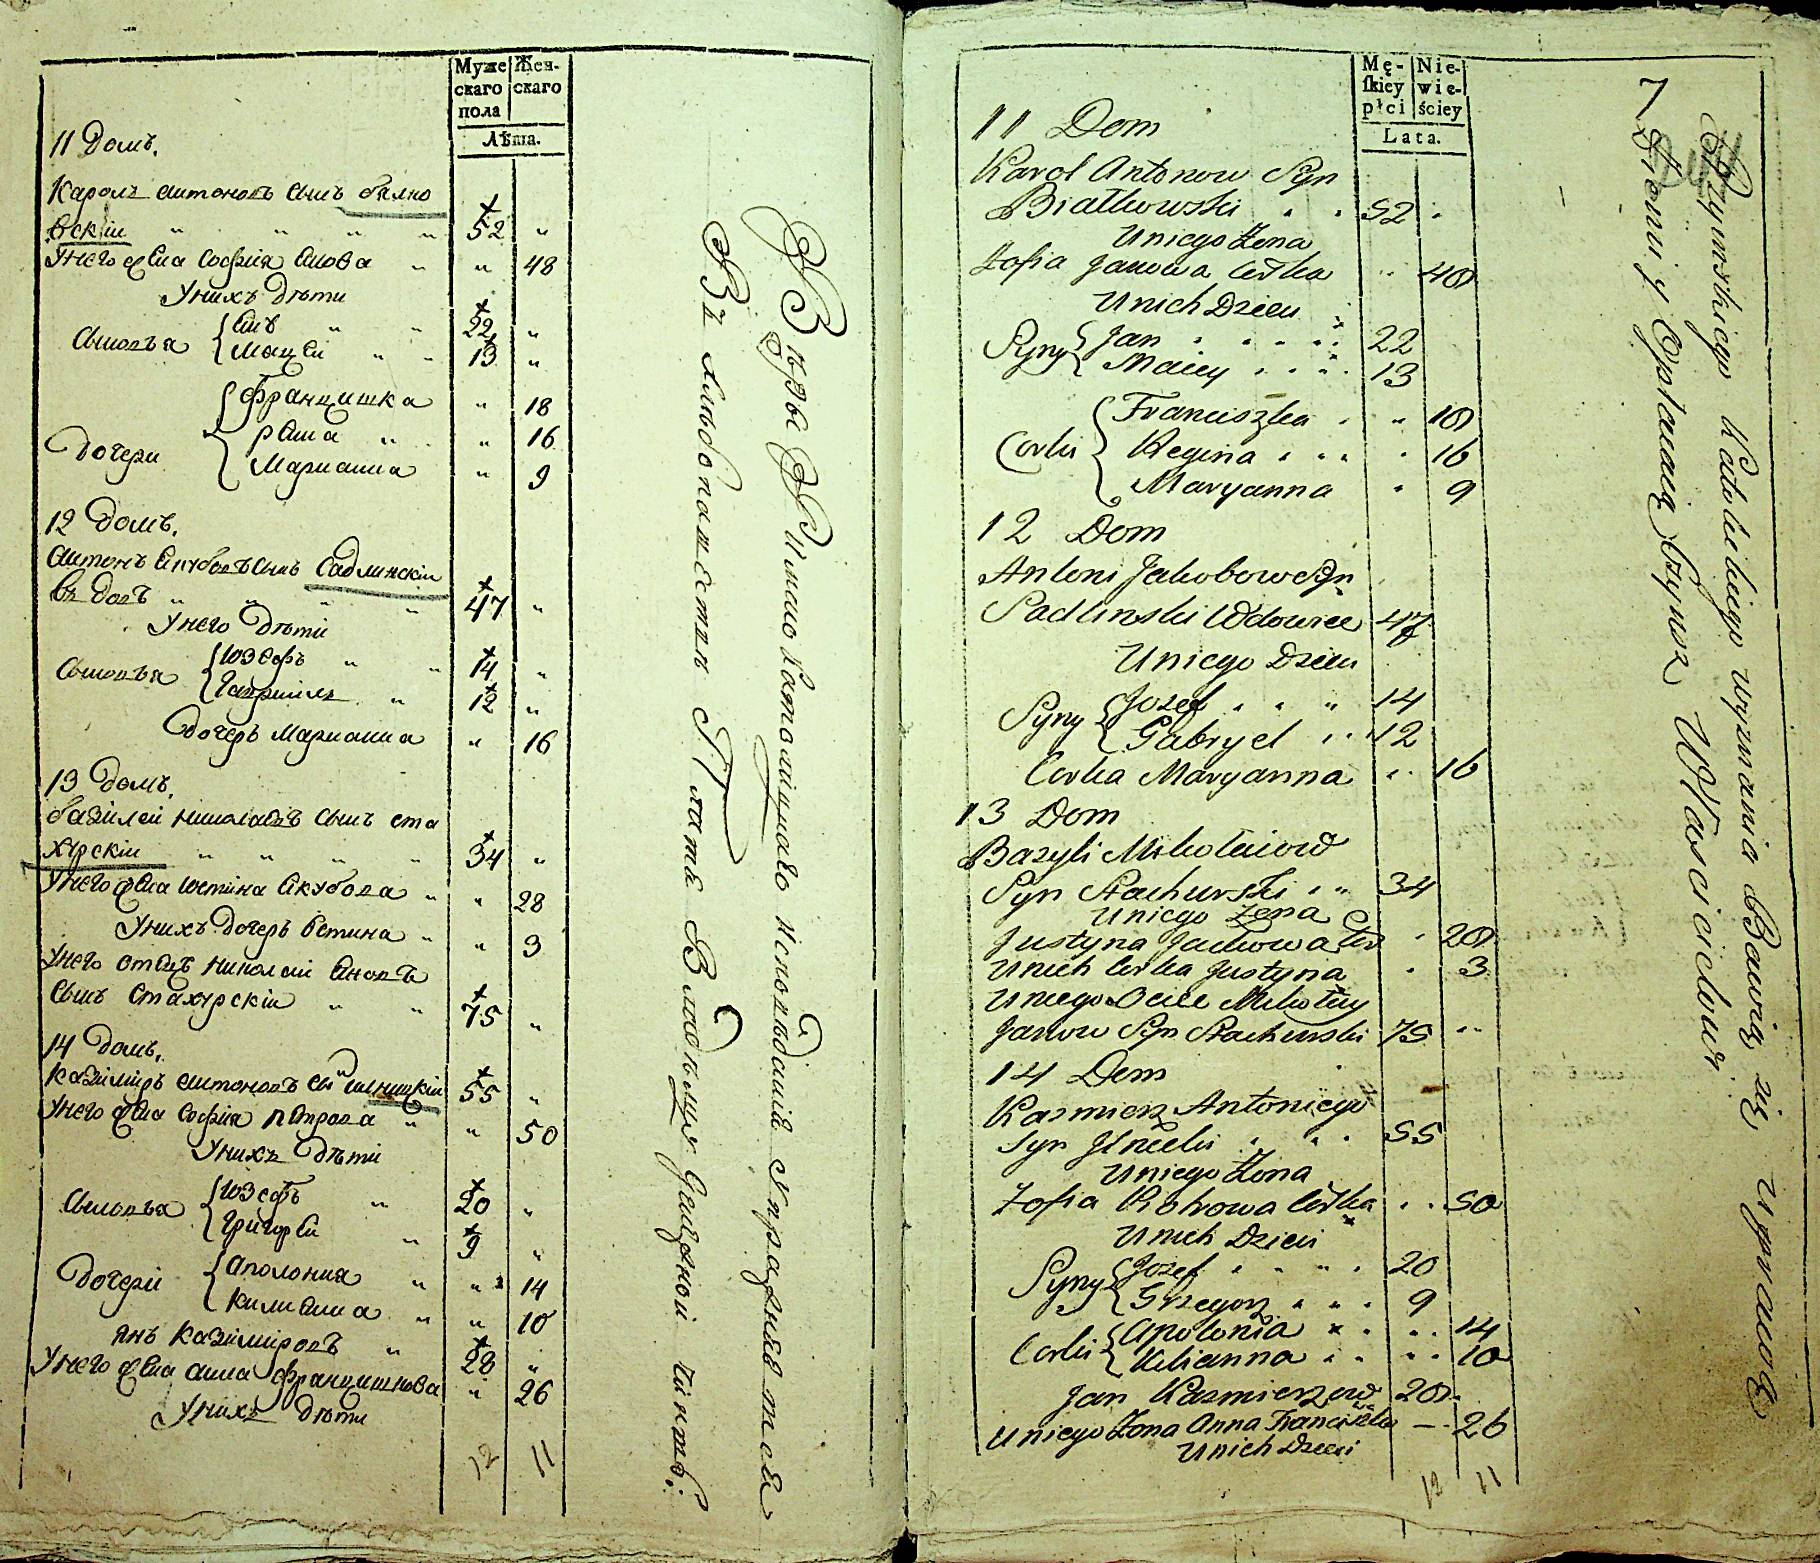 Муже
скаго
пола
Жен-
скаго
Лѣта.
11 Домъ.
Кароль Антоновъ сынъ бялко
вскіи " " " " 52 "
Унего жена Софія Янова " " 48
Унихъ Дѣти
Сыновья { Янъ " " 22 "
Мацеи " " 13 "
Дочери { Францишка " 18
Марианна " 9
12 Домъ.
Антонъ Якубовъ сынъ Садлинскіи
вдовъ " " " " 47 "
Унего Дѣти
Сыновья { Юзефъ " " 14 "
Гавриилъ " 12 "
Дочерь Марианна " 16
13 Домъ.
базилей Николаевъ сынъ ста
хурскіи " " " " 34 "
Унего жена Юстина Якубова " " 28
Унихъ Дочерь Юстина " " 3
Унего отецъ Николай Яновъ
сынъ Стахурскіи " " 75 "
14 Домъ.
Казиміръ Антоновъ сынъ 55 "
Унего жена Софія Петрова " " 50
Унихъ Дѣти
Сыновья { Юзефъ " 20 "
Григорей " 9 "
Дочери { Аполония " " 14
Килианна " " 10
Янъ Казиміровъ " 28 "
Унего жена Анна Францишкова " 26
Унихъ Дѣти
12 11
Вѣры Римско Католицкаго исповѣданія упражняется
Въ хлѣбопашестве Плата Владѣльцу Чиншъ.
Mę-
skiey
płci
Nie-
wie-
ściey
Lata.
11 Dom
Karol Antonow Syn
Białkowski . . 52 .
Uniego Żona
Zofia Janowa Corka " 48
Unich Dzieci
Syny { Jan . . . . 22
Maciey . . . 13
Corki { Franciszka . " 18
Regina . . . . 16
Maryanna . 9
12 Dom
Antoni Jakobow Syn
Sadlinski Wdowiec 47
Uniego Dzieci
Syny { Jozef . . " 14
Gabryel . . 12
Corka Maryanna . . 16
13 Dom
Bazyli Mikołaiow
Syn Stachurski . " 34
Uniego Żona
Justyna Jacobowa Cor . 28
Unich Corka Justyna . 3
Uniego Ociec Mikołay
Janow Syn Stachurski 75 "
14 Dom
Kazmierz Antoniego
Syn . . . 55
Uniego Żona
Zofia Piotrowa Corka . . 50
Unich Dzieci
Syny { Jozef . . . . 20
Grzegorz . . . 9
Corki { Apolonia . . . . 14
Kilianna . . . . 10
Jan Kazmierzow 28 .
Uniego Żona Anna Franciszko — 26
Unich Dzieci
12 11
7
Rzymskiego Katolickiego wyznania Bawią się uprawą
Ziemi y Opłacaią Czynsz Włascicielowi